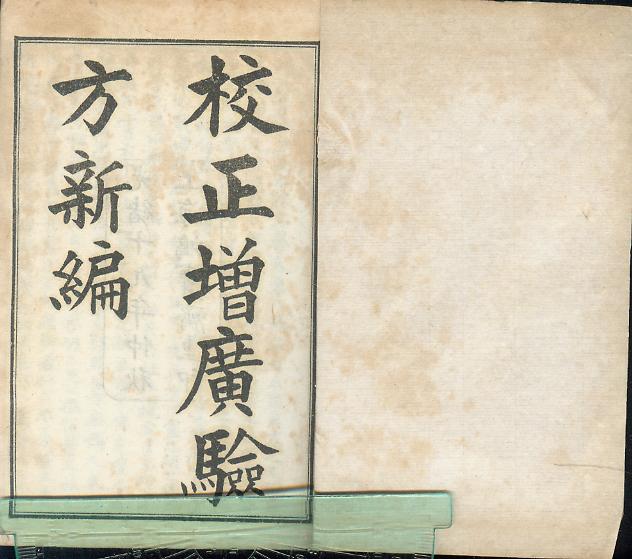 校正增廣驗
方新編